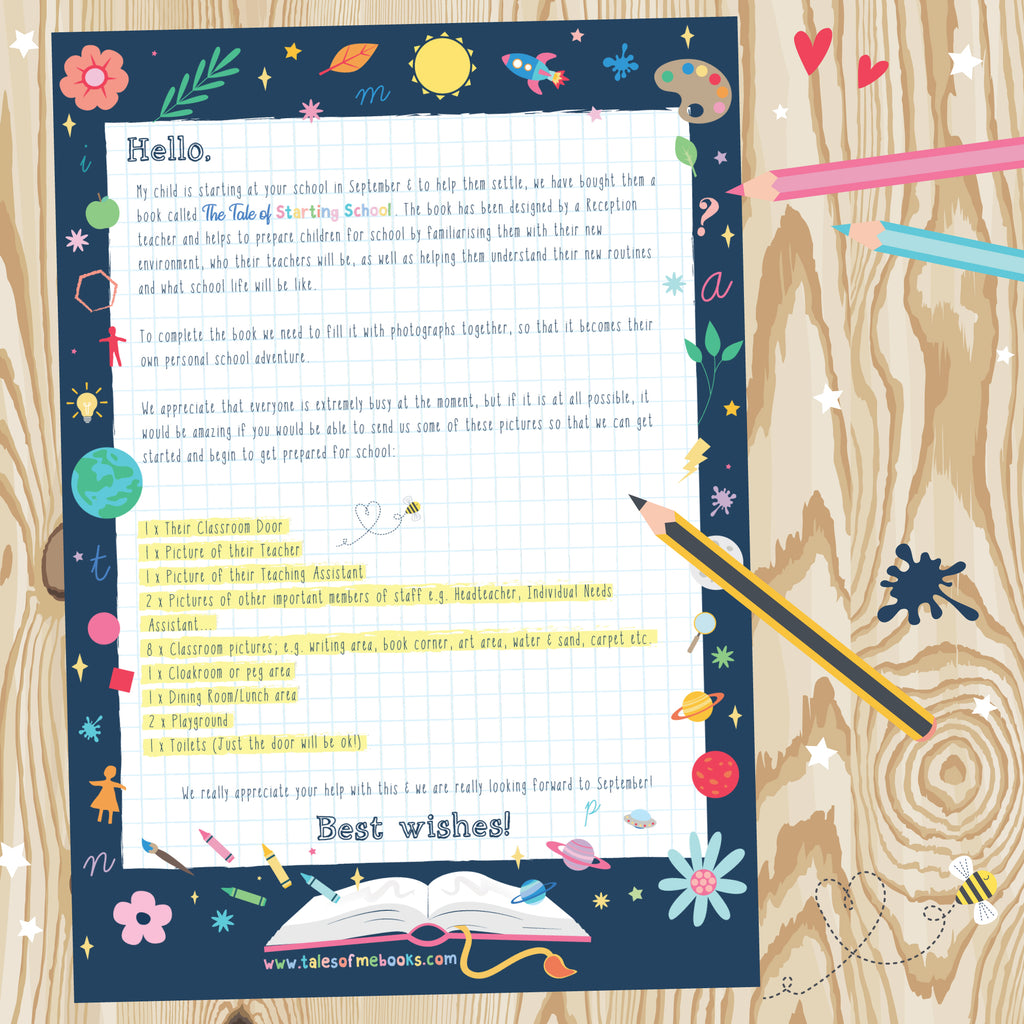 Hello,
My child is starting at your school in September & to help them settle, we have bought them a
book called The Tale of Starting School. The book has been designed by a Reception
teacher and helps to prepare children for school by familiarising them with their new
environment, who their teachers will be, as well as helping them understand their new routines
and what school life will be like.
To complete the book we need to fill it with photographs together, so that it becomes their
own personal school adventure.
We appreciate that everyone is extremely busy at the moment, but if it is at all possible, it
would be amazing if you would be able to send us some of these pictures so that we can get
started and begin to get prepared for school:
1 x Their Classroom Door
1 x Picture of their Teacher
1 x Picture of their Teaching Assistant
2 x Pictures of other important members of staff e.g. Headteacher, Individual Needs
Assistant...
8 x Classroom pictures; e.g. writing area, book corner, art area, water & sand, carpet etc.
1 x Cloakroom or peg area
1 x Dining Room/Lunch area
2 x Playground
1 x Toilets (Just the door will be ok!)
We really appreciate your help with this & we are really looking forward to September!
Best wishes!
www.talesofmebooks.com
m
i
?
a
t
p
n